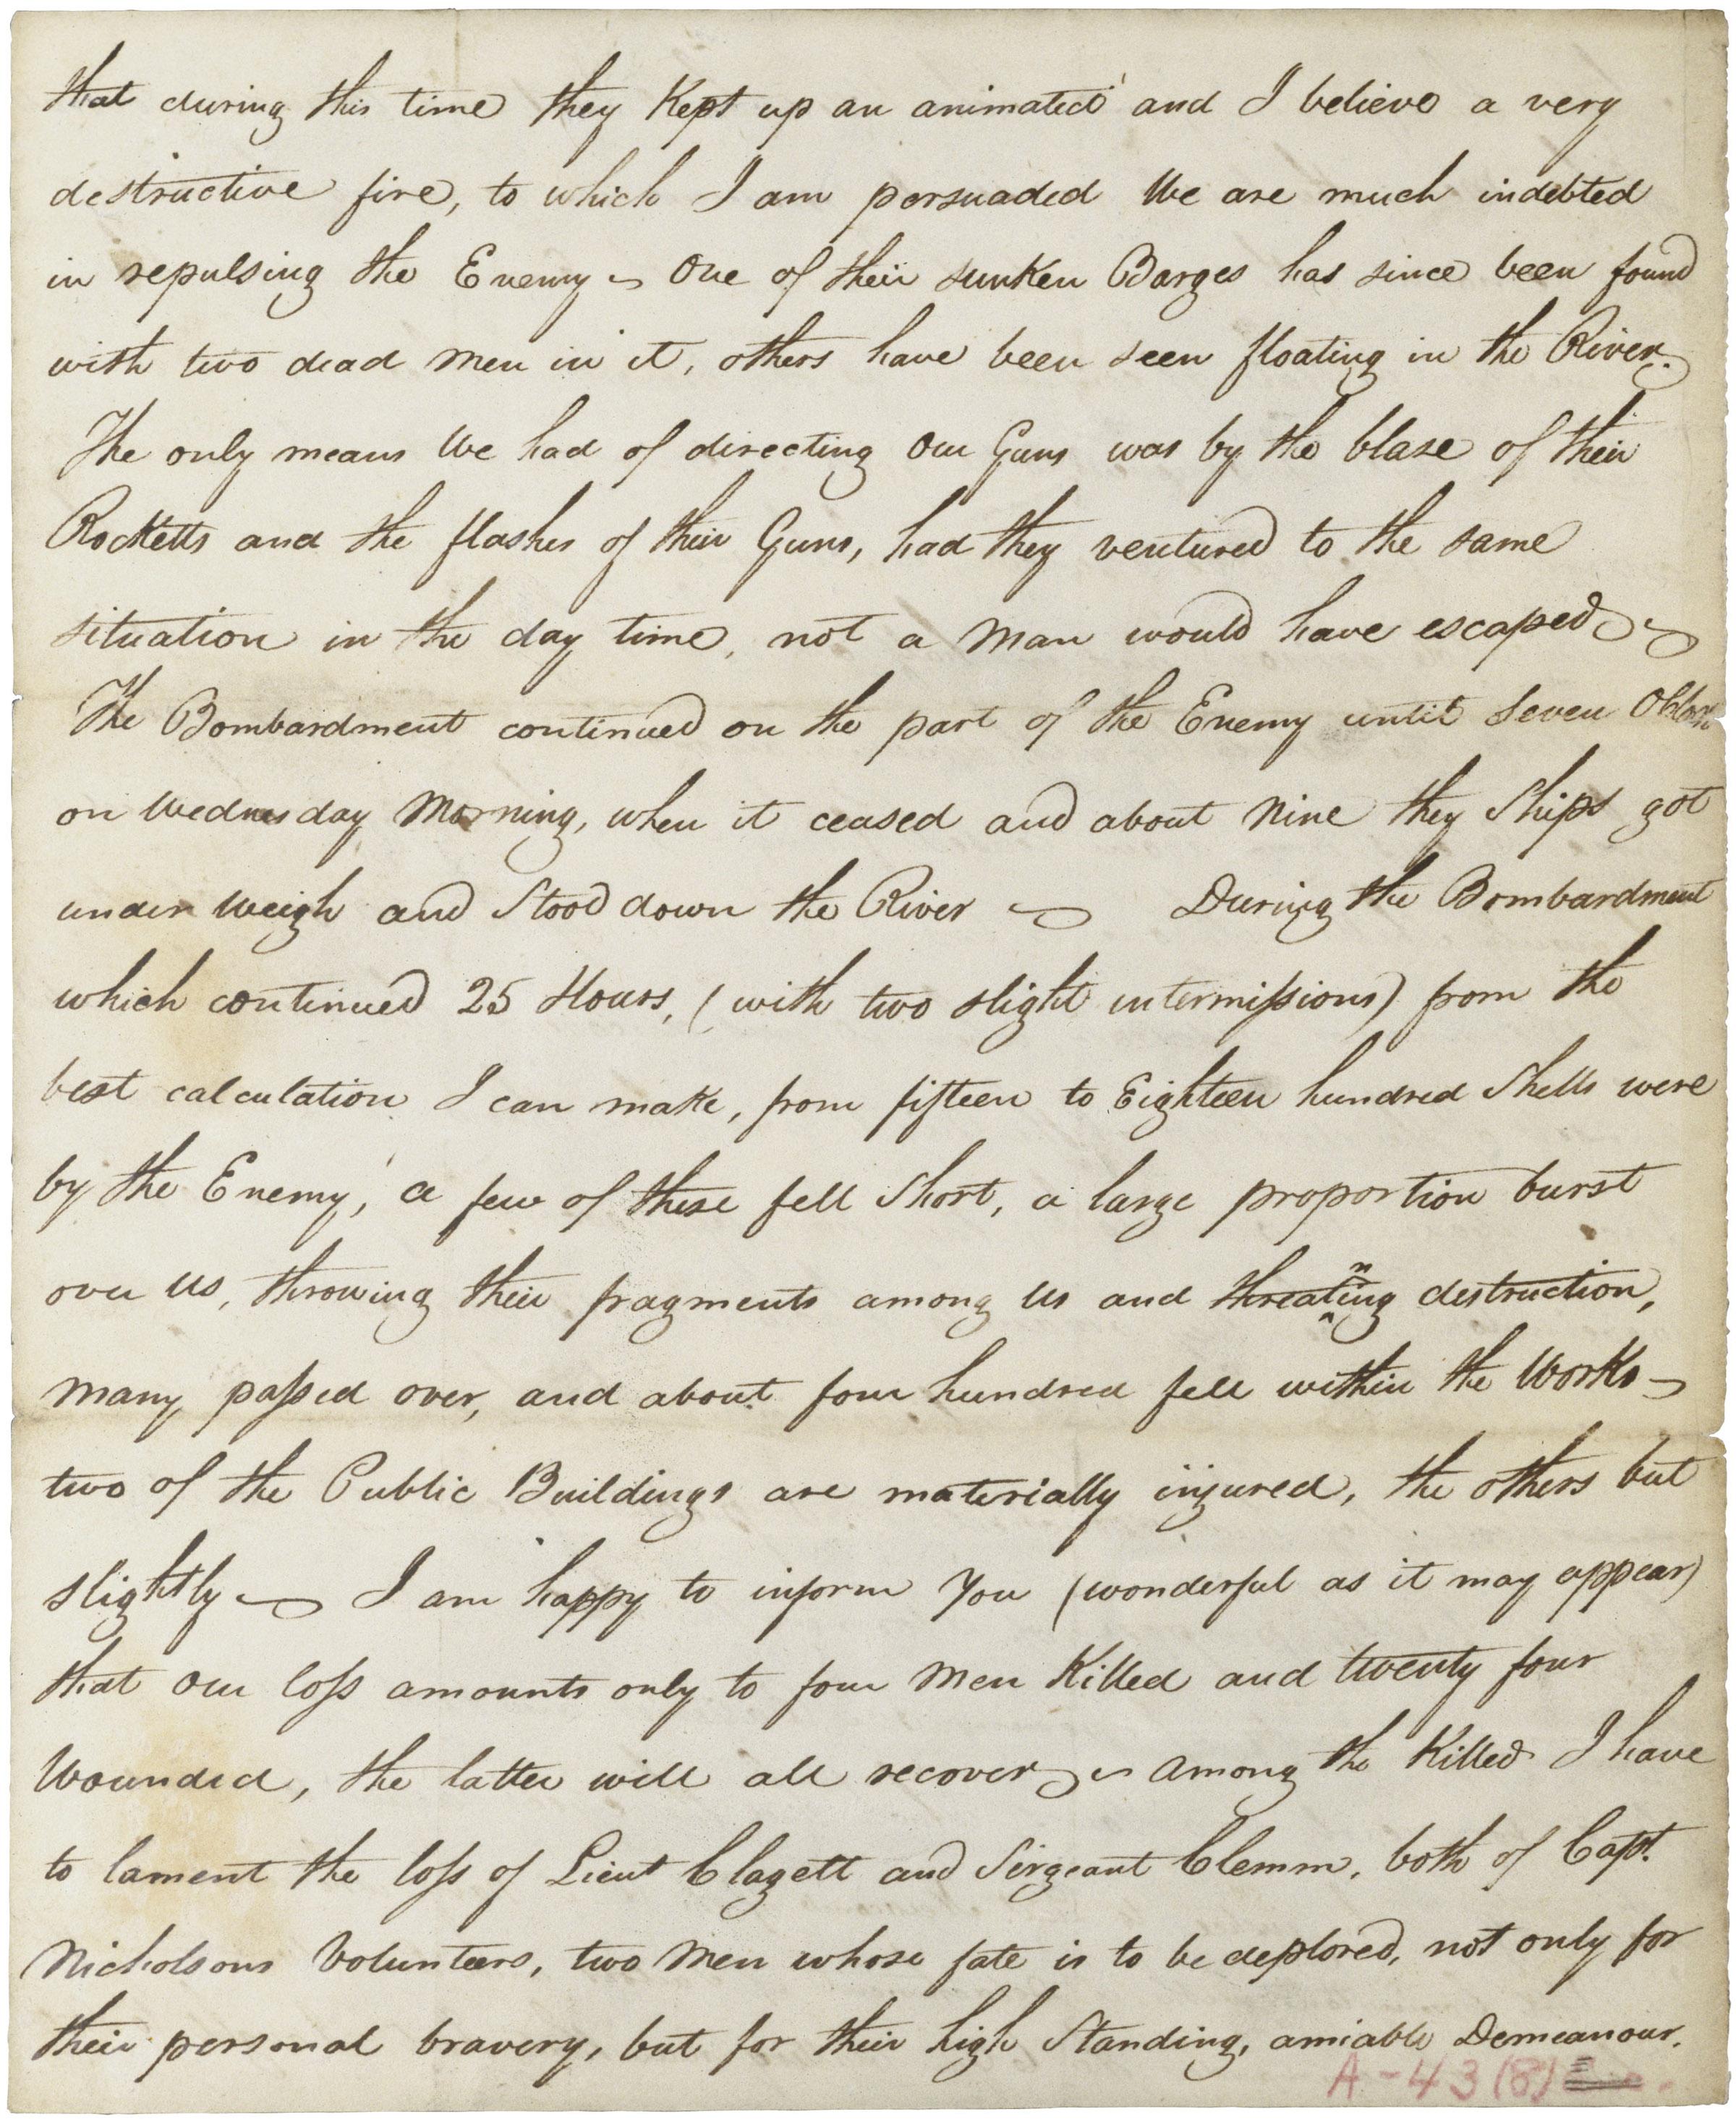 that during this time they Kept up an animated and I believe a very
destructive fire, to which I am persuaded We are much indebted
in repulsing the Enemy ~ One of their sunken Barges has since been found
with two dead Men in it, others have been seen floating in the River.
The only means We had of directing our Guns was by the blaze of their
Rocketts and the flashes of their Guns, had they ventured to the same
situation in the day time, not a Man would have escaped ~
The Bombardment continued on the part of the Enemy until Seven OClock
on Wednesday Morning, when it ceased and about Nine they Ships got
under Weigh and Stood down the River ~ During the Bombardment
which continued 25 Hours, (with two slight intermissions) from the
best calculation I can make, from fifteen to Eighteen hundred Shells were
by the Enemy, a few of these fell Short, a large proportion burst
over Us, throwing their fragments among Us and threatning destruction,
Many passed over, and about four hundred fell within the Works ~
two of the Public Buildings are materially injured, the others but
slightly ~ I am happy to inform You (wonderful as it may appear)
that our loss amounts only to four Men Killed and twenty four
Wounded, the latter will all recover ~ Among the Killed I have
to lament the loss of Lieut Clagett and Sergeant Clemm, both of Capt.
Nicholsons Volunteers, two Men whose fate is to be deplored, not only for
their personal bravery, but for their high Standing, amiable Demeanour.
A-43(8)